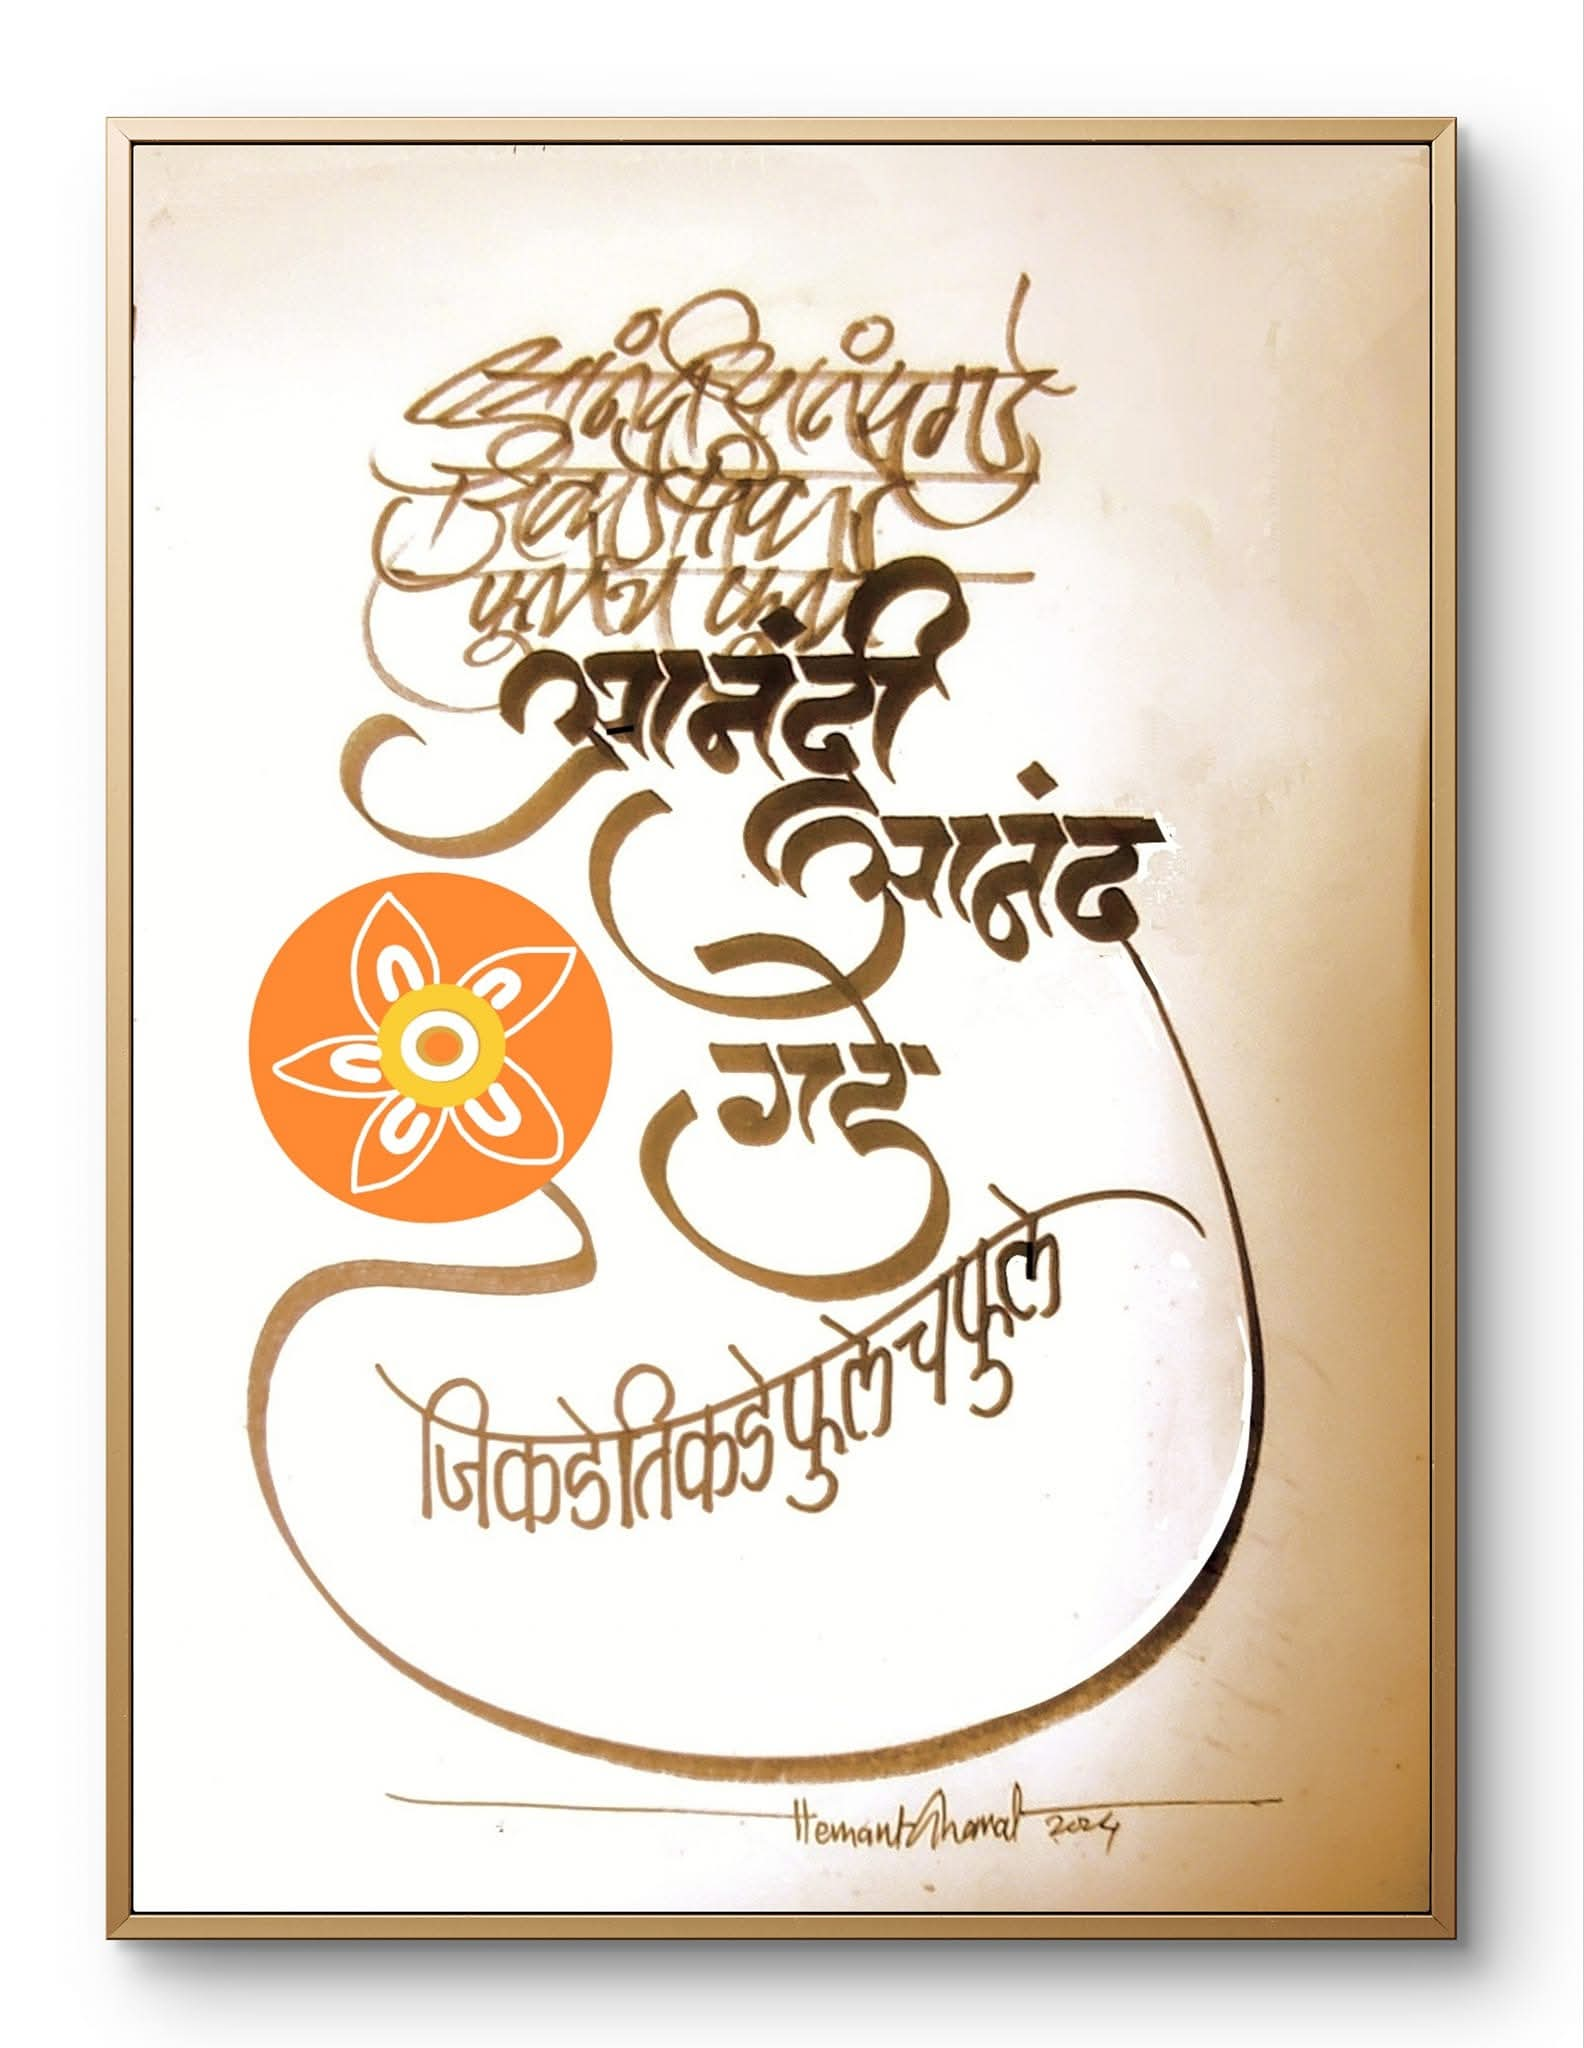 आनंदी आनंद गडे
जिकडे तिकडे
आनंदी
आनंद
गडे
जिकडे तिकडे फुले च फुले
Hemant Ghamal 2024